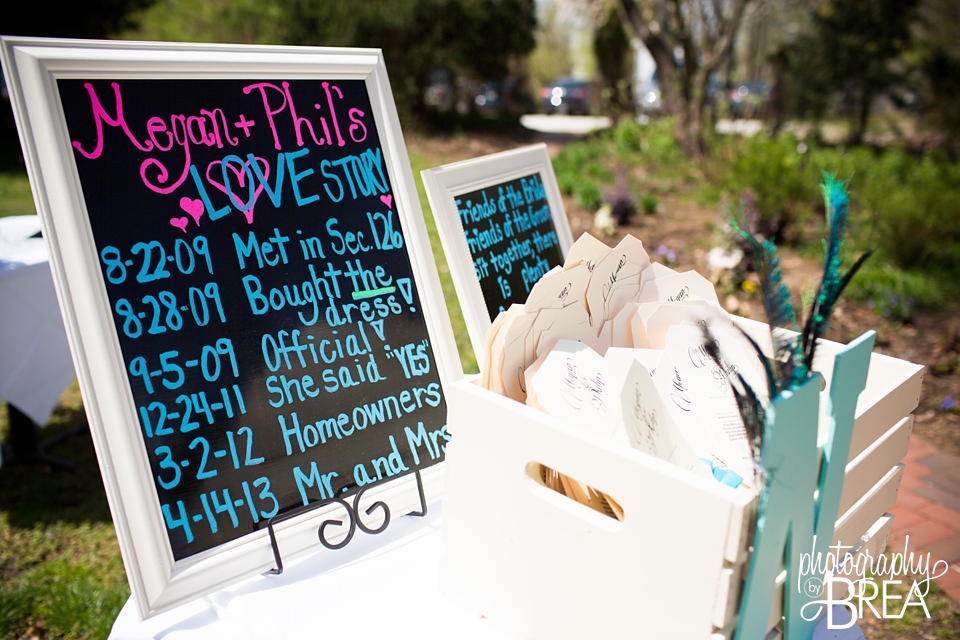 Megan + Phil's
LOVE STORY
8-22-09 Met in Sec. 126
8-28-09 Bought the dress!
9-5-09 Official!
12-24-11 She said "YES"
3-2-12 Homeowners
4-14-13 Mr. and Mrs
Friends of the Bride
Friends of the Groom
Sit together, there
is plenty
photography
by BREA